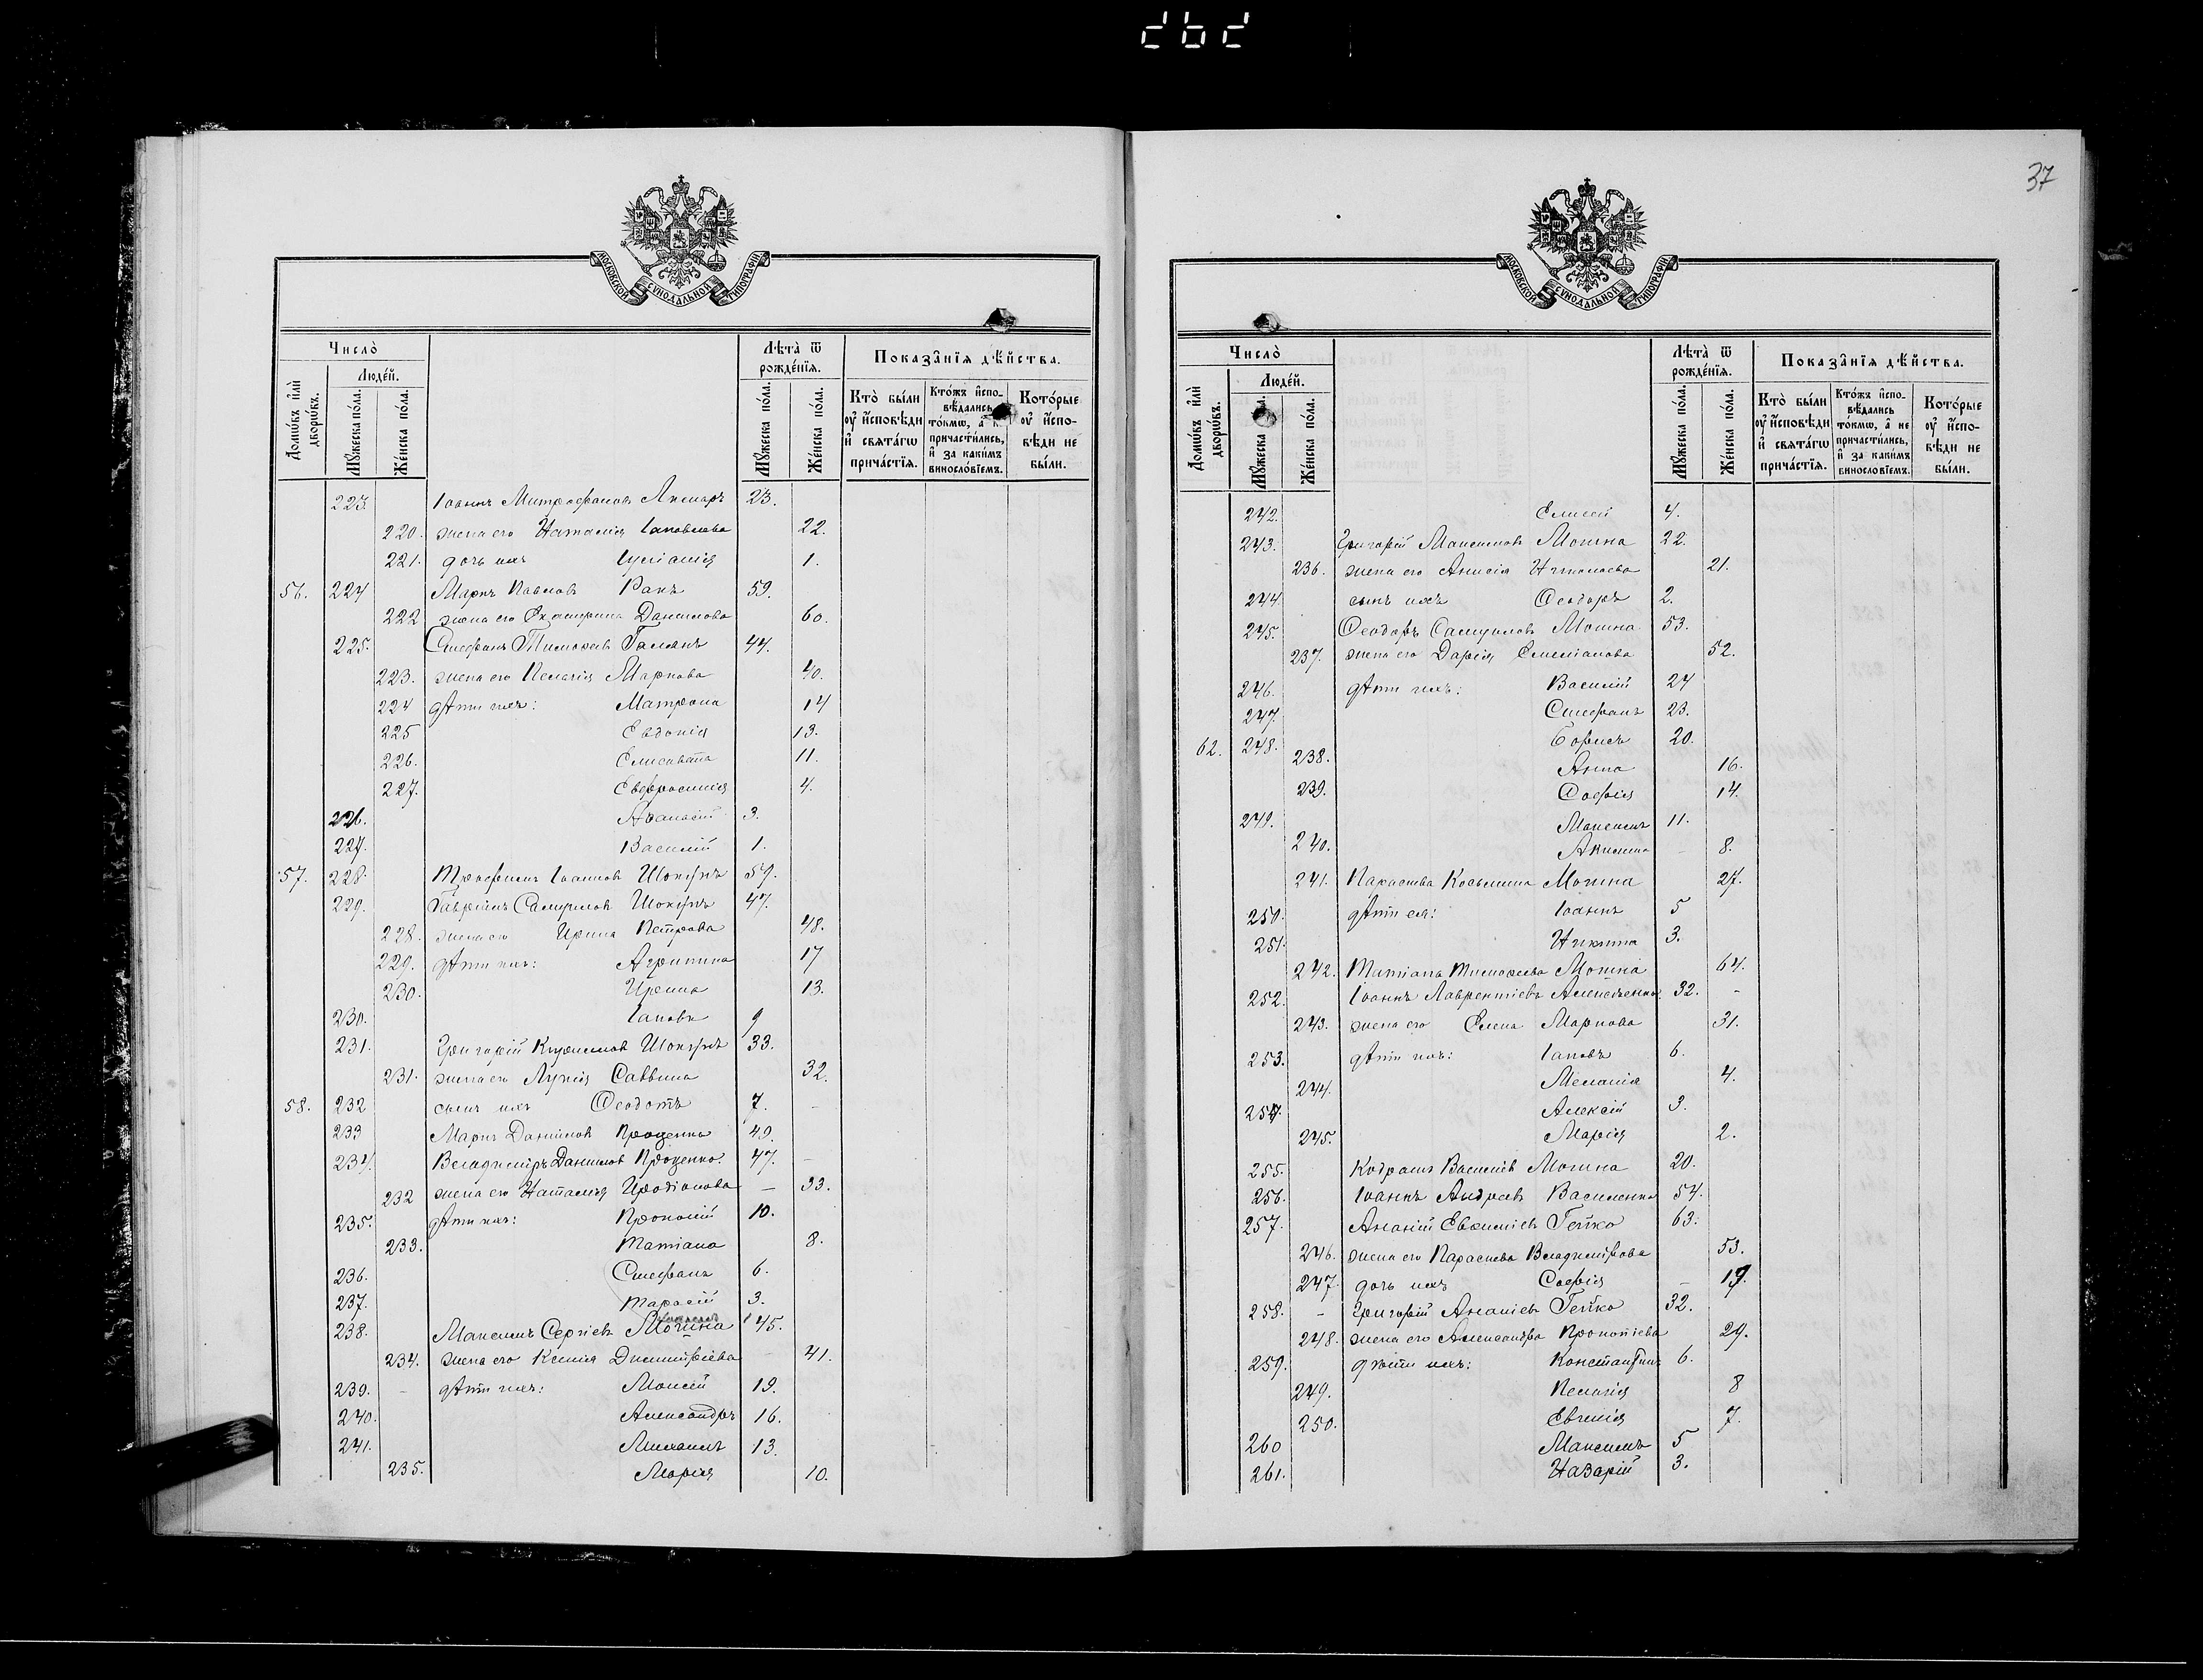 37
МОСКОВСКОЙ СѴНОДАЛЬНОЙ ТИПОГРАФІИ
Число̀
Люде́й.
Домѡ́въ и҆лѝ дворѡ́въ.
Мꙋ́жеска по́ла.
Же́нска по́ла.
Лѣ́та ѿ рожде́нїѧ.
Мꙋ́жеска по́ла.
Же́нска по́ла.
Показа̑нїѧ дѣ́йства.
Кто̀ бы́ли оу҆ и҆́сповѣди и҆ свѧта́гѡ прича́стїѧ.
Кто́жъ и҆спо-вѣ́дались то́кмѡ, а҆ н причасти́лись, и҆ за каки́мъ винослО́вїемъ.
Кото́рые оу҆ и҆спо-вѣди не бы́ли.
223. Іоаннъ Митрофановъ 23.
220. жена его Наталія Іаковлева 22.
221. дочь ихъ Іуліанія 1.
56. 224 Маркъ Павловъ Ракъ 59.
222 жена его Екатерина Данилова 60.
225. Стефанъ Тимоѳеевъ Галанъ 44.
223. жена его Пелагія Маркова 40.
224 дѣти ихъ: Матрона 14
225 Евдокія 13.
226. Елисавета 11.
227. Евфросинія 4.
226. Аѳанасій 3.
227. Василій 1.
57. 228. Трофимъ Іоанновъ Шокунъ 59.
229. Гавріилъ Самуиловъ Шокунъ 47.
228. жена его Ирина Петрова 48.
229. дѣти ихъ: Агрипина 17
230. Ирина 13.
230. Іаковъ 9
231. Григорій Кирилловъ Шокунъ 33.
231. жена его Лукія Саввина 32.
58. 232 сынъ ихъ Ѳеодотъ 7.
233 Маркъ Даниловъ Проценко 49.
234. Владиміръ Даниловъ Проценко. 47.
232 жена его Наталія Иродіонова 33.
235. дѣти ихъ: Прокопій 10.
233. Татіана 8.
236. Стефанъ 6.
237. Тарасій 3.
238. Максимъ Сергіевъ Мошна 45.
234. жена его Ксенія Димитріева 41.
239. дѣти ихъ: Моисей 19.
240. Александръ 16.
241. Михаилъ 13.
235. Марія 10.
МОСКОВСКОЙ СѴНОДАЛЬНОЙ ТИПОГРАФІИ
Число̀
Люде́й.
Домѡ́въ и҆лѝ дворѡ́въ.
Мꙋ́жеска
Же́нска по́ла.
Лѣ́та ѿ рожде́нїѧ.
Мꙋ́жеска по́ла.
Же́нска по́ла.
Показа̑нїѧ дѣ́йства.
Кто̀ бы́ли оу҆ и҆́сповѣди и҆ свѧта́гѡ прича́стїѧ.
Кто́жъ и҆спо-вѣ́дались то́кмѡ, а҆ не причасти́лись, и҆ за каки́мъ винослО́вїемъ.
Кото́рые оу҆ и҆спо-вѣди не бы́ли.
242. Елисей 4.
243. Григорій Максимовъ Мошна 22.
236. жена его Анисія Николаева 21.
244. сынъ ихъ Ѳеодоръ 2.
245. Ѳеодоръ Самуиловъ Мошна 53.
237. жена его Дарія Емеліанова 52.
246. дѣти ихъ: Василій 24
247. Стефанъ 23.
62. 248. Борисъ 20.
238. Анна 16.
239. Софія 14.
249. Максимъ 11.
240. Акилина 8.
241. Параскева Косьмина Мошна 27.
250. дѣти ея: Іоаннъ 5
251. Никита 3.
242. Татіана Тимоѳеева Мошна 64.
252. Іоаннъ Лаврентіевъ Алексѣенко. 32.
243. жена его Елена Маркова 31.
253. дѣти ихъ: Іаковъ 6.
244. Меланія 4.
254. Алексій 3.
245. Марія 2.
255. Кодратъ Василіевъ Мошна 20.
256. Іоаннъ Андреевъ Василенко 54.
257. Ананій Евѳиміевъ Гейко 63.
246. жена его Параскева Владимірова 53.
247. дочь ихъ Софія 19.
258. Григорій Ананіевъ Гейко 32.
248. жена его Александра Прокопіева 29.
259. дѣти ихъ: Константинъ 6.
249. Пелагія 8
250. Евгенія 7.
260 Максимъ 5
261. Назарій 3.